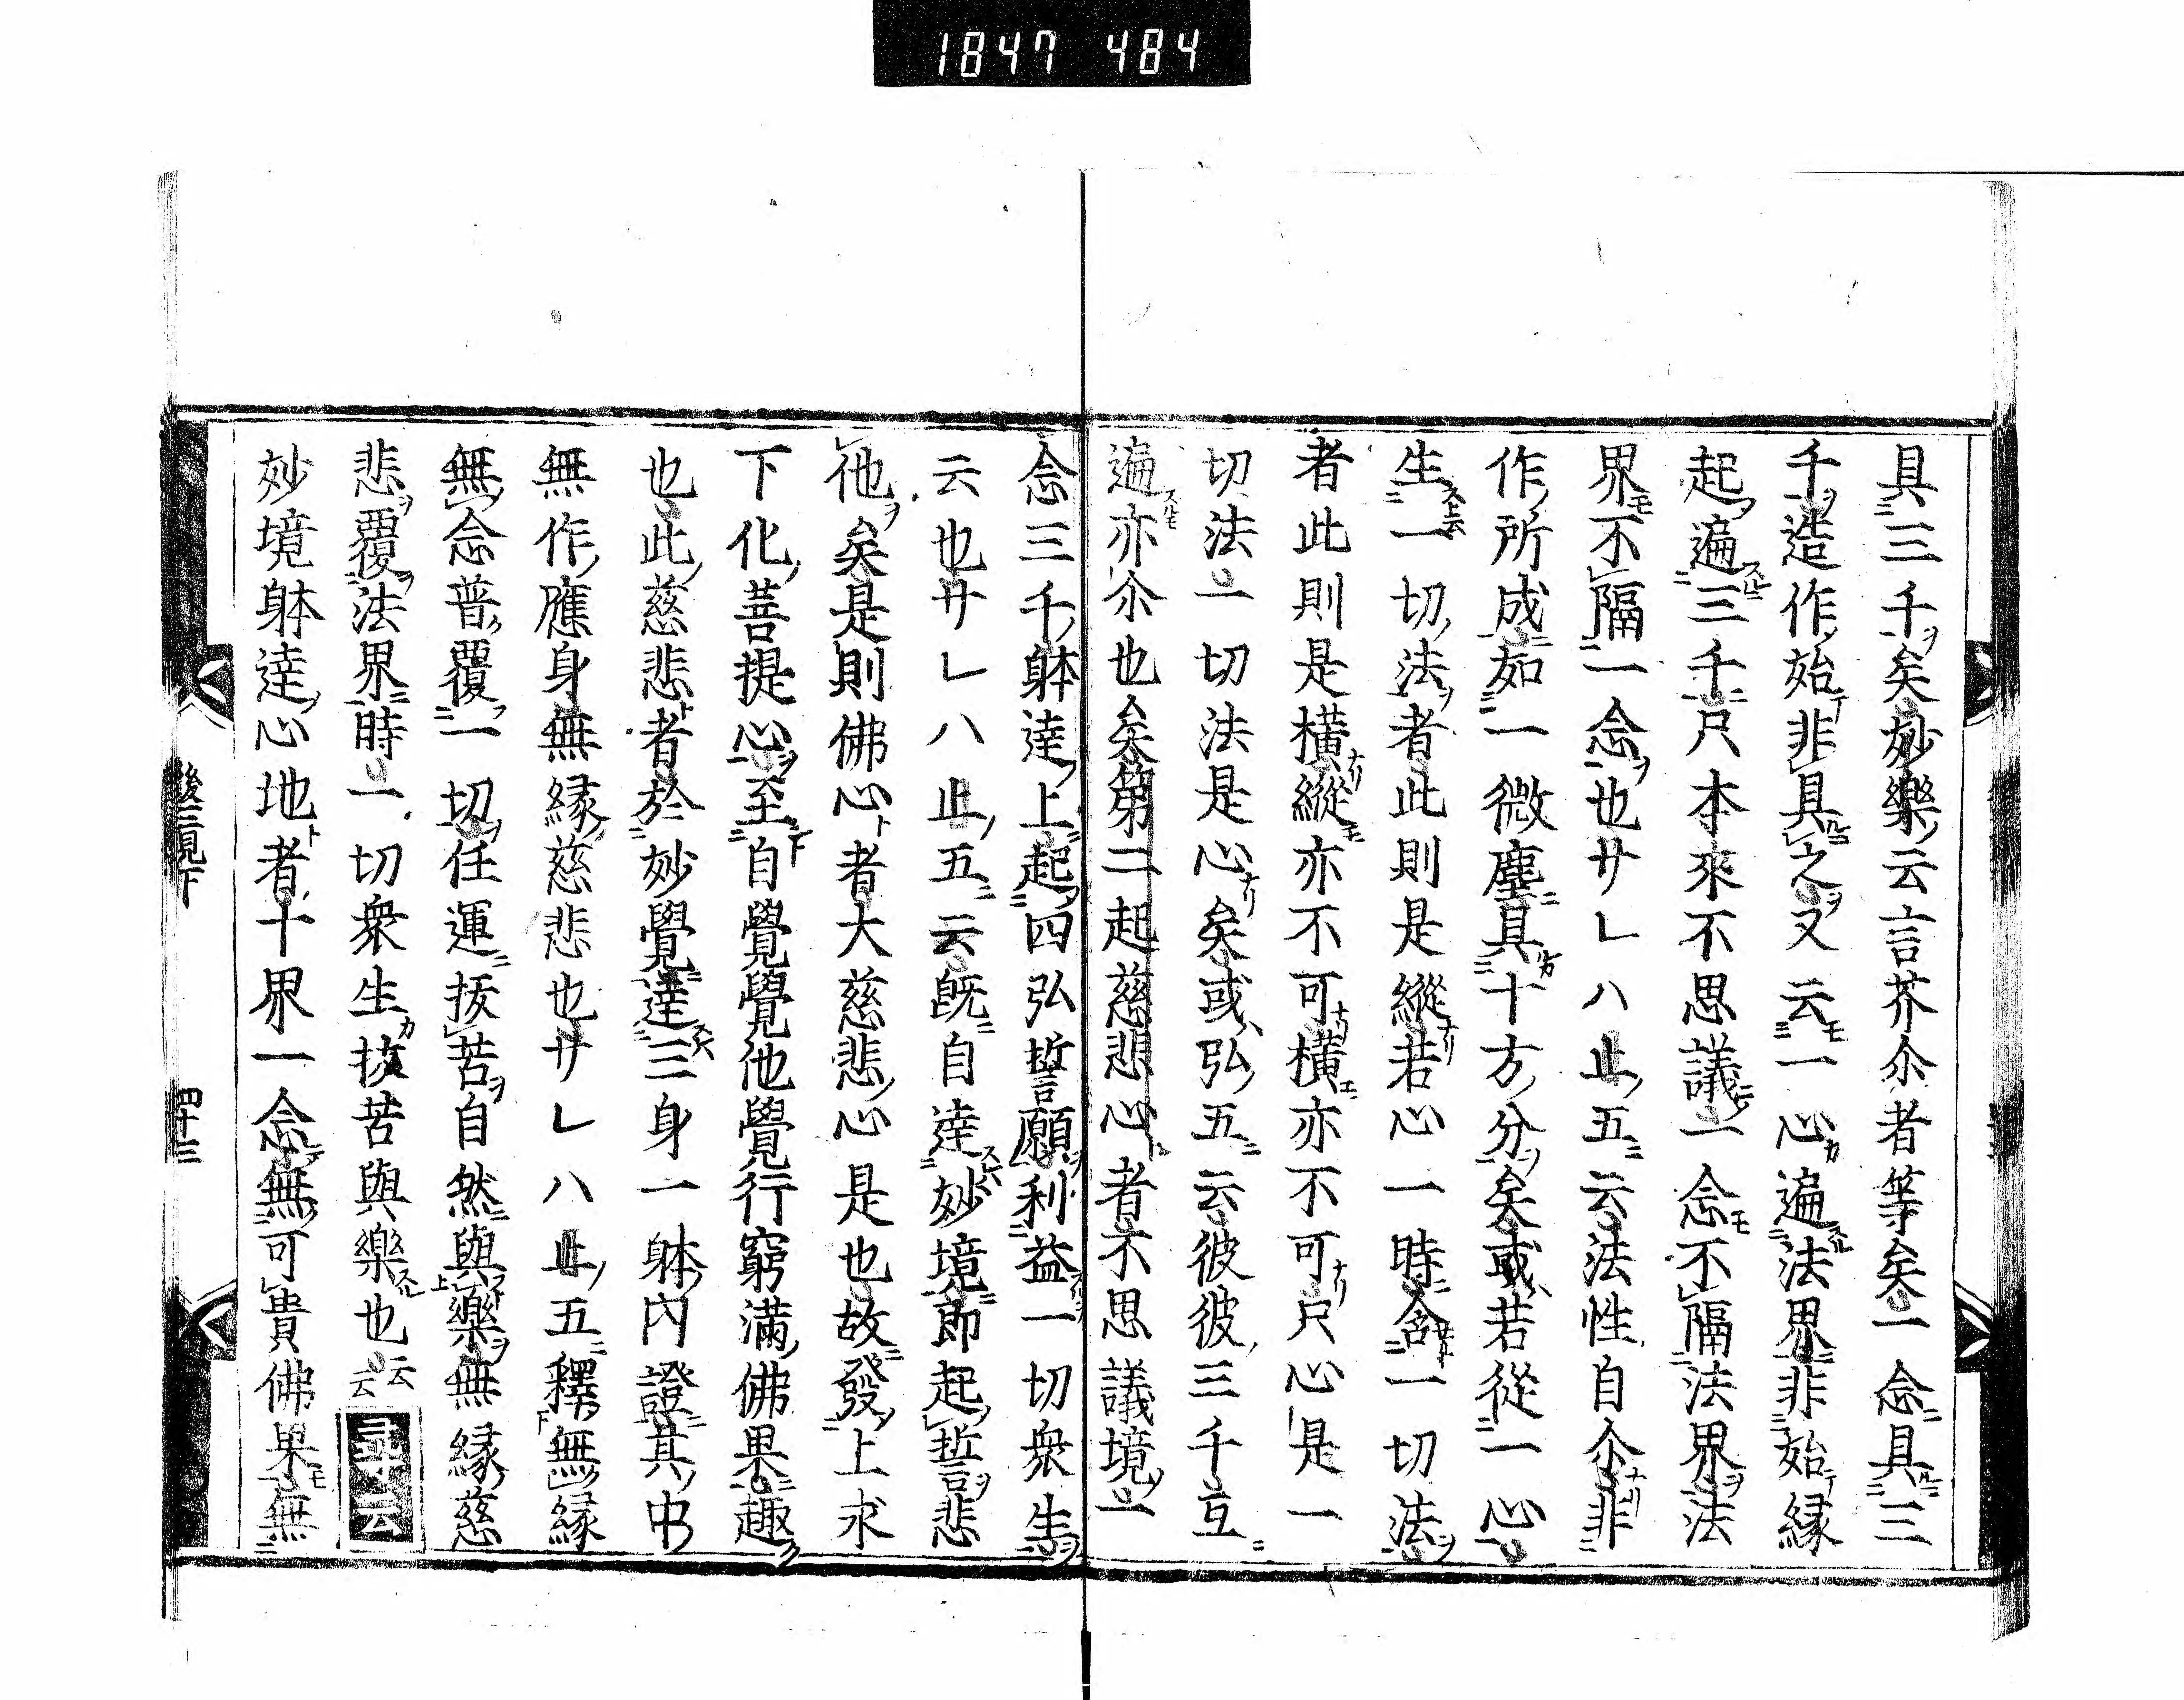 1847 484
具三千矣妙樂云言芥尒者等矣一念具三
千造作始非具之又云一心遍法界非始縁
起遍三千尺本來不思議一念不隔法界法
界不隔一念也廾乚八止五云法性自尒非
作所成如一微塵具十方分矣或若從一心
生一切法者此則是縱若心一時含一切法
者此則是横縱亦不可横亦不可尺心是一
切法一切法是心矣或弘五云彼彼三千互
遍亦尒也矣第二起慈悲心者不思議境一
念三千躰達上起四弘誓願利益一切衆生
云也廾乚八止五云既自達妙境即起誓悲
他矣是則佛心者大慈悲心是也故發上求
下化菩提心至自覺覺他覺行窮滿佛果趣
也此慈悲者於妙覺達三身一躰内證其中
無作應身無縁慈悲也廾乚八止五釋無縁
無念普覆一切任運拔苦自然與樂無縁慈
悲覆法界時一切衆生拔苦與樂也云云尋云
妙境躰達心地者十界一念無可貴佛果無
後三見下
四十三